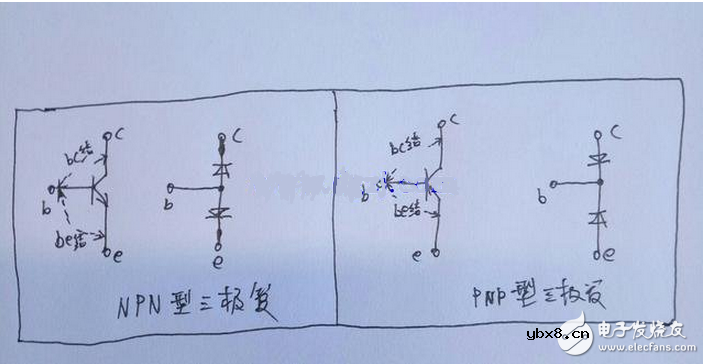 c
bc结
b
be结
e
c
b
e
NPN型三极管
c
bc结
b
be结
e
c
b
e
PNP型三极管
ybx8.cn
电子发烧友
www.elecfans.com